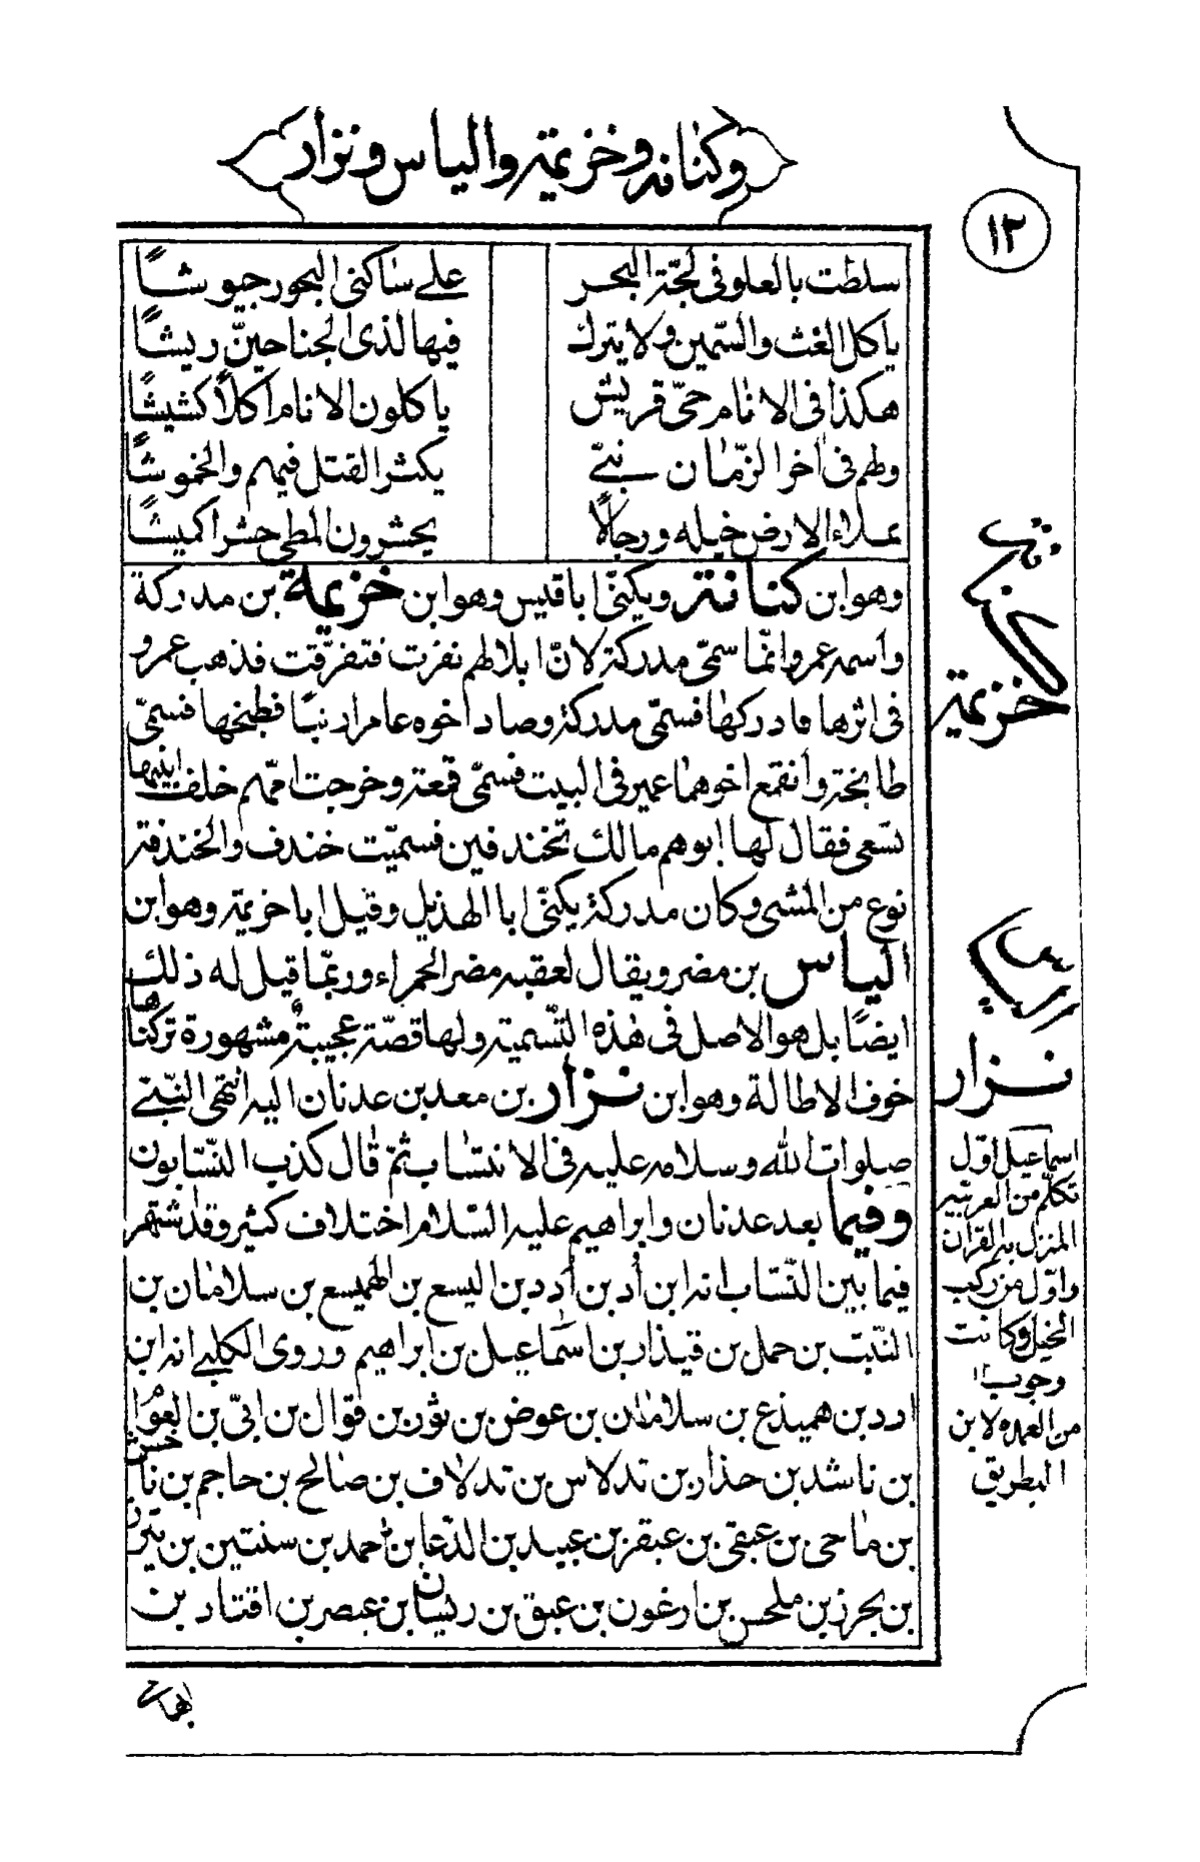 وكنانة وخزيمة والياس ونزار
١٢
سلطت بالعلو في لجّة البحر على ساكني البحور جيوشًا
ياكل الغث والسّمين ولا يترك فيها لذي الجناحين ريشًا
هكذا في الانام حيّ قريش ياكلون الانام اكلاً كشيشًا
ولهم في اخر الزّمان نبيّ يكثر القتل فيهم والخموشًا
يملاء الارض خيله ورجالاً يحشرون المطي حشرا كميشًا
وهو ابن كنانة ويكنّى ابا قيس وهو ابن خزيمة بن مدركة
واسمه عمرو وانّما سمّى مدركة لانّ ابلا لهم نفرت فتفرّقت فذهب عمرو
في اثرها فادركها فسمّى مدركة وصاد اخوه عامر ارنبًا فطبخها فسمّى
طابخة وانقمع اخوهما عمير في البيت فسمّى قمعة وخرجت امّهم خلف ابنيها
تسعى فقال لها ابوهم مالك تخندفين فسميّت خندف والخندفة
نوع من المشى وكان مدركة يكنّى ابا الهذيل وقيل ابا خزيمة وهو ابن
الياس بن مضر ويقال لعقبه مضر الحمراء وربّما قيل له ذلك
ايضًا بل هو الاصل في هذه التّسمية ولها قصّة عجيبةٌ مشهورة تركناها
خوف الاطالة وهو ابن نزار بن معد بن عدنان اليه انتهى النّبيّ
صلوات الله وسلامه عليه في الانتساب ثمّ قال كذب النّسّابون
وفيما بعد عدنان وابراهيم عليه السّلام اختلاف كثير وقد اشتهر
فيما بين النّسّاب انه ابن أُد بن أُدد بن اليسع بن الهميسع بن سلامان بن
النّبت بن حمل بن قيذار بن اسماعيل بن ابراهيم وروى الكلبي انه ابن
ادد بن هميذع بن سلامان بن عوض بن ثور بن قوال بن ابيّ بن العوام
بن ناشد بن حذار بن تدلاس بن تدلاف بن صالح بن حاجم بن ناحش
بن ماحى بن عبقى بن عبقر بن عبيد بن الدّعا بن حمد بن سنتين بن
بن يحرز بن ملحس بن ارغون بن عبق بن ريسان بن عيصر بن اقتاد بن
كنانة
خزيمة
الياس
نزار
اسماعيل اوّل
تكلّم من العربيّة
المنزل به القران
واوّل من ركب
الخيل وكانت
وحوشا
من العمده لابن
البطريق